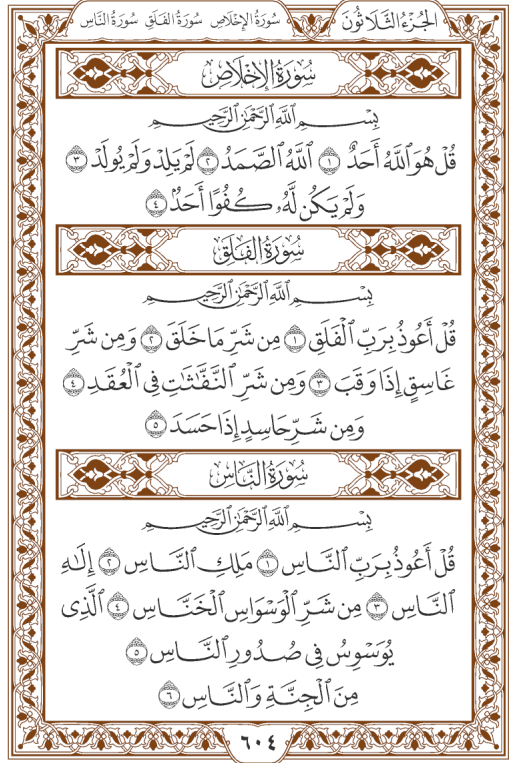 الجُزْءُ الثَّلَاثُونَ سُورَةُ الإِخْلَاصِ سُورَةُ الفَلَقِ سُورَةُ النَّاسِ
سُورَةُ الإِخْلَاصِ
بِسْمِ ٱللَّهِ ٱلرَّحْمَٰنِ ٱلرَّحِيمِ
قُلْ هُوَ ٱللَّهُ أَحَدٌ ١ ٱللَّهُ ٱلصَّمَدُ ٢ لَمْ يَلِدْ وَلَمْ يُولَدْ ٣
وَلَمْ يَكُن لَّهُۥ كُفُوًا أَحَدٌۢ ٤
سُورَةُ الفَلَقِ
بِسْمِ ٱللَّهِ ٱلرَّحْمَٰنِ ٱلرَّحِيمِ
قُلْ أَعُوذُ بِرَبِّ ٱلْفَلَقِ ١ مِن شَرِّ مَا خَلَقَ ٢ وَمِن شَرِّ
غَاسِقٍ إِذَا وَقَبَ ٣ وَمِن شَرِّ ٱلنَّفَّٰثَٰتِ فِي ٱلْعُقَدِ ٤
وَمِن شَرِّ حَاسِدٍ إِذَا حَسَدَ ٥
سُورَةُ النَّاسِ
بِسْمِ ٱللَّهِ ٱلرَّحْمَٰنِ ٱلرَّحِيمِ
قُلْ أَعُوذُ بِرَبِّ ٱلنَّاسِ ١ مَلِكِ ٱلنَّاسِ ٢ إِلَٰهِ
ٱلنَّاسِ ٣ مِن شَرِّ ٱلْوَسْوَاسِ ٱلْخَنَّاسِ ٤ ٱلَّذِي
يُوَسْوِسُ فِي صُدُورِ ٱلنَّاسِ ٥
مِنَ ٱلْجِنَّةِ وَٱلنَّاسِ ٦
٦٠٤